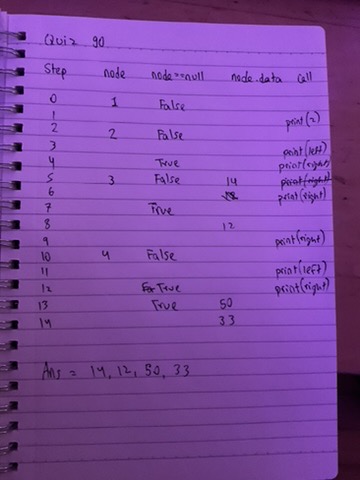 Quiz 90
Step node node==null node.data call
0 1 False
1 print(2)
2 2 False
3 print(left)
4 True print(right)
5 3 False 14 print(right)
6 print(right)
7 True
8 12
9 print(right)
10 4 False
11 print(left)
12 True print(right)
13 True 50
14 33
Ans = 14, 12, 50, 33